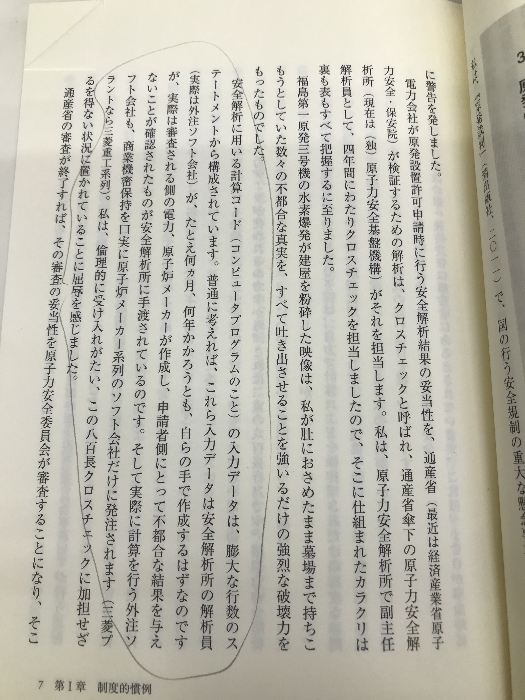 に警告を発しました。
電力会社が原発設置許可申請時に行う安全解析結果の妥当性を、通産省(最近は経済産業省原子
力安全・保安院)が検証するための解析は、クロスチェックと呼ばれ、通産省傘下の原子力安全解
析所(現在は(独)原子力安全基盤機構)がそれを担当します。私は、原子力安全解析所で副主任
解析員として、四年間にわたりクロスチェックを担当しましたので、そこに仕組まれたカラクリは
裏も表もすべて把握するに至りました。
福島第一原発三号機の水素爆発が建屋を粉砕した映像は、私が肚におさめたまま墓場まで持ちこ
もうとしていた数々の不都合な真実を、すべて吐き出させることを強いるだけの強烈な破壊力を
もったものでした。
安全解析に用いる計算コード(コンピュータプログラムのこと)の入力データは、膨大な行数のス
テートメントから構成されています。普通に考えれば、これら入力データは安全解析所の解析員
(実際は外注ソフト会社)が、たとえ何ヵ月、何年かかろうとも、自らの手で作成するはずなのです
が、実際は審査される側の電力、原子炉メーカーが作成し、申請者側にとって不都合な結果を与え
ないことが確認されたものが安全解析所に手渡されているのです。そして実際に計算を行う外注ソ
フト会社も、商業機密保持を口実に原子炉メーカー系列のソフト会社だけに発注されます(三菱プ
ラントなら三菱重工系列)。私は、倫理的に受け入れがたい、この八百長クロスチェックに加担せざ
るを得ない状況に置かれていることに屈辱を感じました。
通産省の審査が終了すれば、その審査の妥当性を原子力安全委員会が審査することになり、そこ
7 第Ⅰ章 制度的慣例